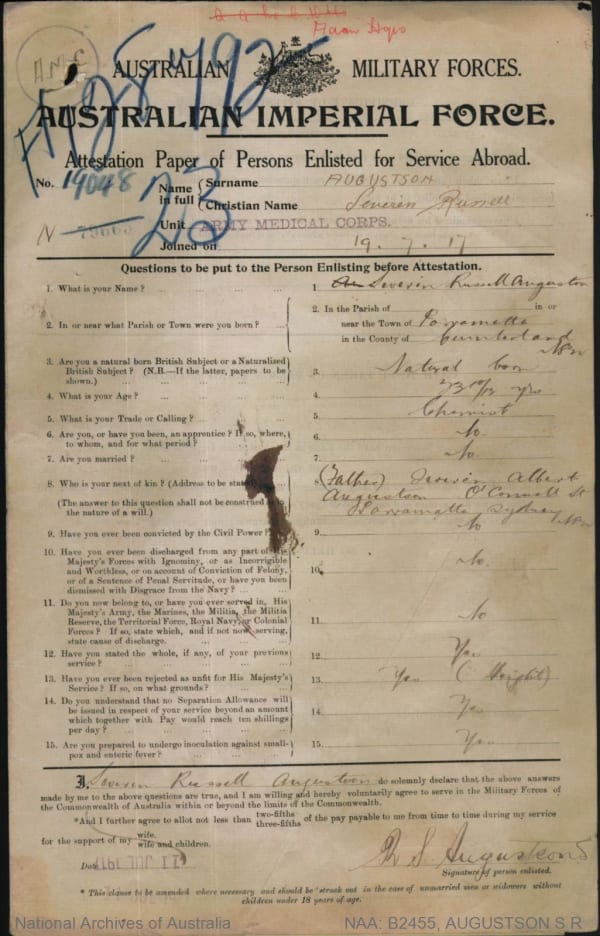 AAMC Hqrs
A.M.C
AUSTRALIAN MILITARY FORCES.
AUSTRALIAN IMPERIAL FORCE.
Attestation Paper of Persons Enlisted for Service Abroad.
No. 19048
N
Name in full { Surname AUGUSTSON
Christian Name Severen Russell
Unit ARMY MEDICAL CORPS.
Joined on 19.7.17
Questions to be put to the Person Enlisting before Attestation.
1. What is your Name? ... 1. Severen Russell Augustson
2. In or near what Parish or Town were you born? ... 2. In the Parish of in or
near the Town of Parramatta
in the County of Cumberland NSW
3. Are you a natural born British Subject or a Naturalized
British Subject? (N.B.—If the latter, papers to be
shown.) 3. Natural born
4. What is your Age? ... 4. 23 10/12 yrs
5. What is your Trade or Calling? ... 5. Chemist
6. Are you, or have you been, an apprentice? If so, where,
to whom, and for what period? 6. No
7. Are you married? ... 7. No
8. Who is your next of kin? (Address to be stated)
(The answer to this question shall not be construed as in
the nature of a will.)
8. (Father) Severen Albert
Augustson O'Connell St
Parramatta Sydney NSW
9. Have you ever been convicted by the Civil Power? 9. No
10. Have you ever been discharged from any part of His
Majesty's Forces with Ignominy, or as Incorrigible
and Worthless, or on account of Conviction of Felony,
or of a Sentence of Penal Servitude, or have you been
dismissed with Disgrace from the Navy? ... 10. No
11. Do you now belong to, or have you ever served in, His
Majesty's Army, the Marines, the Militia, the Militia
Reserve, the Territorial Force, Royal Navy, or Colonial
Forces? If so, state which, and if not now serving,
state cause of discharge. 11. No
12. Have you stated the whole, if any, of your previous
service? 12. Yes
13. Have you ever been rejected as unfit for His Majesty's
Service? If so, on what grounds? 13. Yes (Height)
14. Do you understand that no Separation Allowance will
be issued in respect of your service beyond an amount
which together with Pay would reach ten shillings
per day? 14. Yes
15. Are you prepared to undergo inoculation against small-
pox and enteric fever? 15. Yes
I, Severen Russell Augustson do solemnly declare that the above answers
made by me to the above questions are true, and I am willing and hereby voluntarily agree to serve in the Military Forces of
the Commonwealth of Australia within or beyond the limits of the Commonwealth.
*And I further agree to allot not less than two-fifths three-fifths of the pay payable to me from time to time during my service
for the support of my wife. wife and children.
Date 11 JUL 1917
R S Augustson
Signature of person enlisted.
* This clause to be amended where necessary and should be struck out in the case of unmarried men or widowers without
children under 18 years of age.
National Archives of Australia NAA: B2455, AUGUSTSON S R